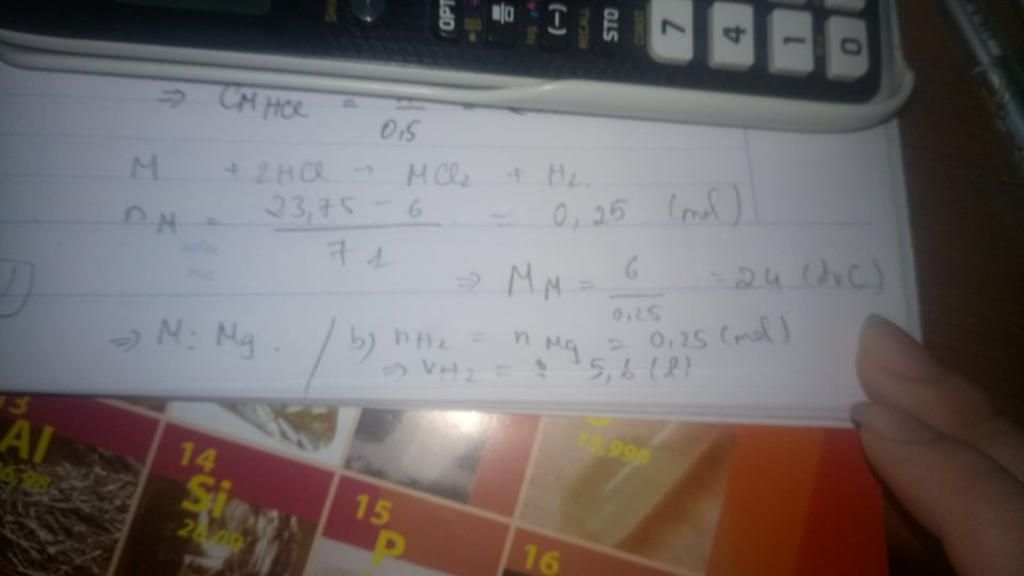 OPT
(−)
RECALL
STO
7
4
1
0
⇒ CM HCl =
0,5
M + 2HCl → MCl2 + H2.
nM = 23,75 - 6 / 71 = 0,25 (mol)
⇒ MM = 6 / 0,25 = 24 (đvC)
⇒ M: Mg. / b) nH2 = nMg = 0,25 (mol)
⇒ VH2 = 5,6 (l)
13
Al
14
Si
15,999
15
P
16